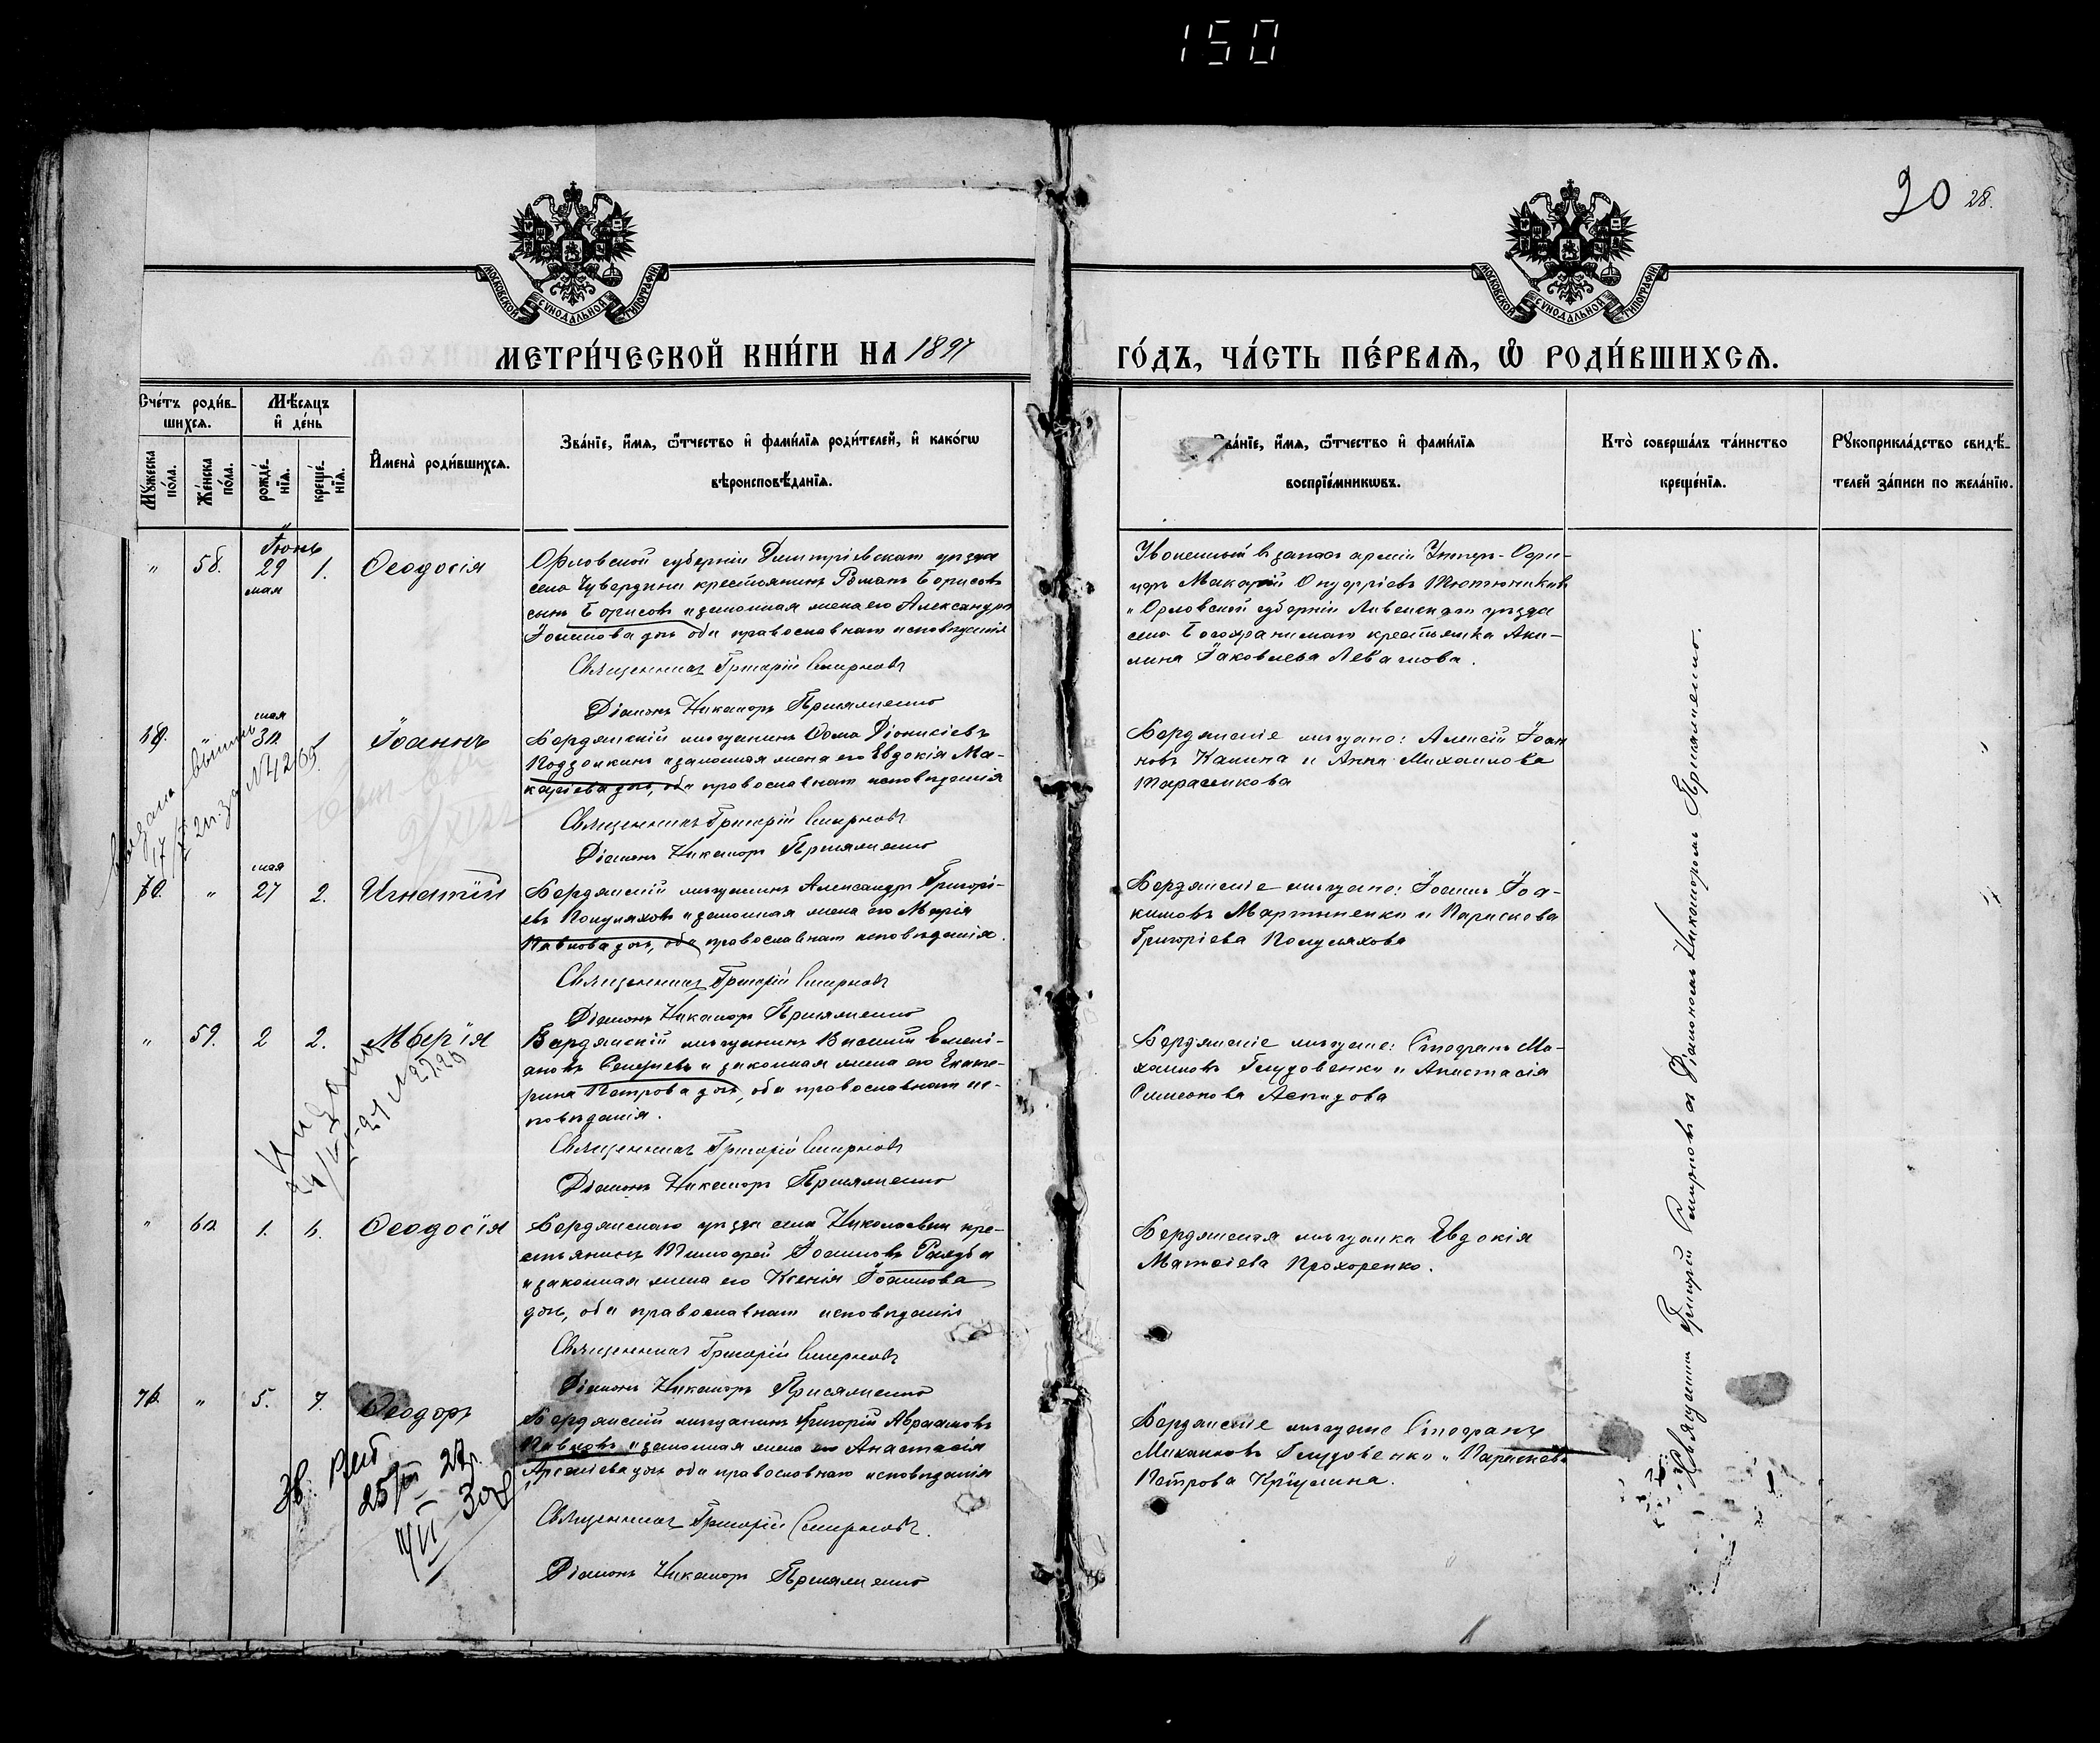 150
20 28.
МОСКОВСКОЙ СѴНОДАЛЬНОЙ ТИПОГРАФІИ
МОСКОВСКОЙ СѴНОДАЛЬНОЙ ТИПОГРАФІИ
МЕТРИ́ЧЕСКОЙ КНИ́ГИ НА 1897 ГО́ДЪ, ЧА́СТЬ ПЕ́РВАѦ, Ѡ҆ РОДИ́ВШИХСѦ.
Сче́тъ роди́в-
шихсѧ.
Мѣ́сѧцъ
и҆ де́нь
Мꙋ́жеска
по́ла.
Же́нска
по́ла.
рожде́-
нїѧ.
креще́-
нїѧ.
И҆мена̀ роди́вшихсѧ.
Зва́нїе, и҆́мѧ, ѻ҆́тчество и҆ фамѝлїѧ роди́телей, и҆ како́гѡ
вѣроисповѣ́данїѧ.
Зва́нїе, и҆́мѧ, ѻ҆́тчество и҆ фамѝлїѧ
воспрїе́мникѡвъ.
Кто̀ соверша́лъ та́инство
креще́нїѧ.
Рꙋкоприкла́дство свидѣ́-
телей за́писи по жела́нїю.
Іюнь
" 58. 29 1. Ѳеодосія
мая
Орловской губерніи Дмитріевскаго уѣзда
села Чувардина крестьянинъ Романъ Борисовъ
сынъ Борисовъ и законная жена его Александра
Іоаннова дочь оба православнаго исповѣданія
Священникъ Григорій Смирновъ
Діаконъ Никаноръ Присяженко
Уволенный въ запасъ арміи Унтеръ-Офи-
церъ Макарій Онуфріевъ Тютюниковъ
и Орловской губерніи Ливенскаго уѣзда
села Богохранимаго крестьянка Аки-
лина Іаковлева Левашова.
мая
30 1. Іоаннъ
Бердянскій мѣщанинъ Ѳома Діонисіевъ
Подзолкинъ и законная жена его Евдокія Ма-
каріева дочь, оба православнаго исповѣданія
Священникъ Григорій Смирновъ
Діаконъ Никаноръ Присяженко
Бердянскіе мѣщане: Алексій Іоан
новъ Канина и Анна Михаилова
Тарасикова
№ 4265
мая
70. " 27 2. Игнатій
Бердянскій мѣщанинъ Александръ Григорі-
евъ Полуляховъ и законная жена его Марія
Павлова дочь, оба православнаго исповѣданія.
Священникъ Григорій Смирновъ
Діаконъ Никаноръ Присяженко
Бердянскіе мѣщане: Іоаннъ Іоа-
кимовъ Мартыненко и Параскева
Григоріева Полуляхова
" 59. 2 2. Валерія
Бердянскій мѣщанинъ Василій Емелі-
ановъ Селезневъ и законная жена его Екате-
рина Петрова дочь, оба православнаго ис-
повѣданія.
Священникъ Григорій Смирновъ
Діаконъ Никаноръ Присяженко
Бердянскіе мѣщане: Стефанъ Ми-
хаиловъ Голудовенко и Анастасія
Симеонова Аспидова
" 60. 1. 6. Ѳеодосія
Бердянскаго уѣзда села Николаевки кре-
стьянинъ Тимофей Іоанновъ
и законная жена его Ксенія Іоаннова
дочь, оба православнаго исповѣданія
Священникъ Григорій Смирновъ
Діаконъ Никаноръ Присяженко
Бердянская мѣщанка Евдокія
Матѳіева Прохоренко.
71. " 5. 7. Ѳеодоръ
Бердянскій мѣщанинъ Григорій Авраамовъ
Павловъ и законная жена его Анастасія
Арсеніева дочь оба православнаго исповѣданія
Священникъ Григорій Смирновъ.
Діаконъ Никаноръ Присяженко
Бердянскіе мѣщане Стефанъ
Михаиловъ Голудовенко и Параскева
Петрова Круглина.
Священникъ Григорій Смирновъ съ Діакономъ Никаноромъ Присяженко.